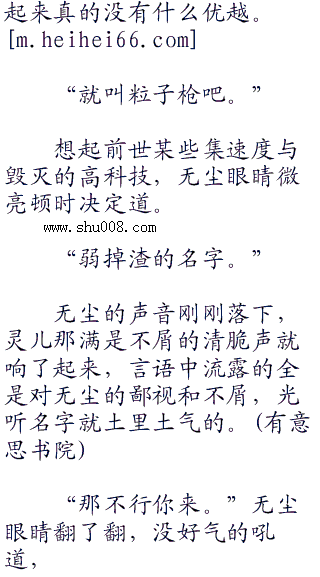 起来真的没有什么优越。
[m.heihei66.com]
“就叫粒子枪吧。”
想起前世某些集速度与
毁灭的高科技，无尘眼睛微
亮顿时决定道。
www.shu008.com
“弱掉渣的名字。”
无尘的声音刚刚落下，
灵儿那满是不屑的清脆声就
响了起来，言语中流露的全
是对无尘的鄙视和不屑，光
听名字就土里土气的。(有意
思书院)
“那不行你来。”无尘
眼睛翻了翻，没好气的吼
道，